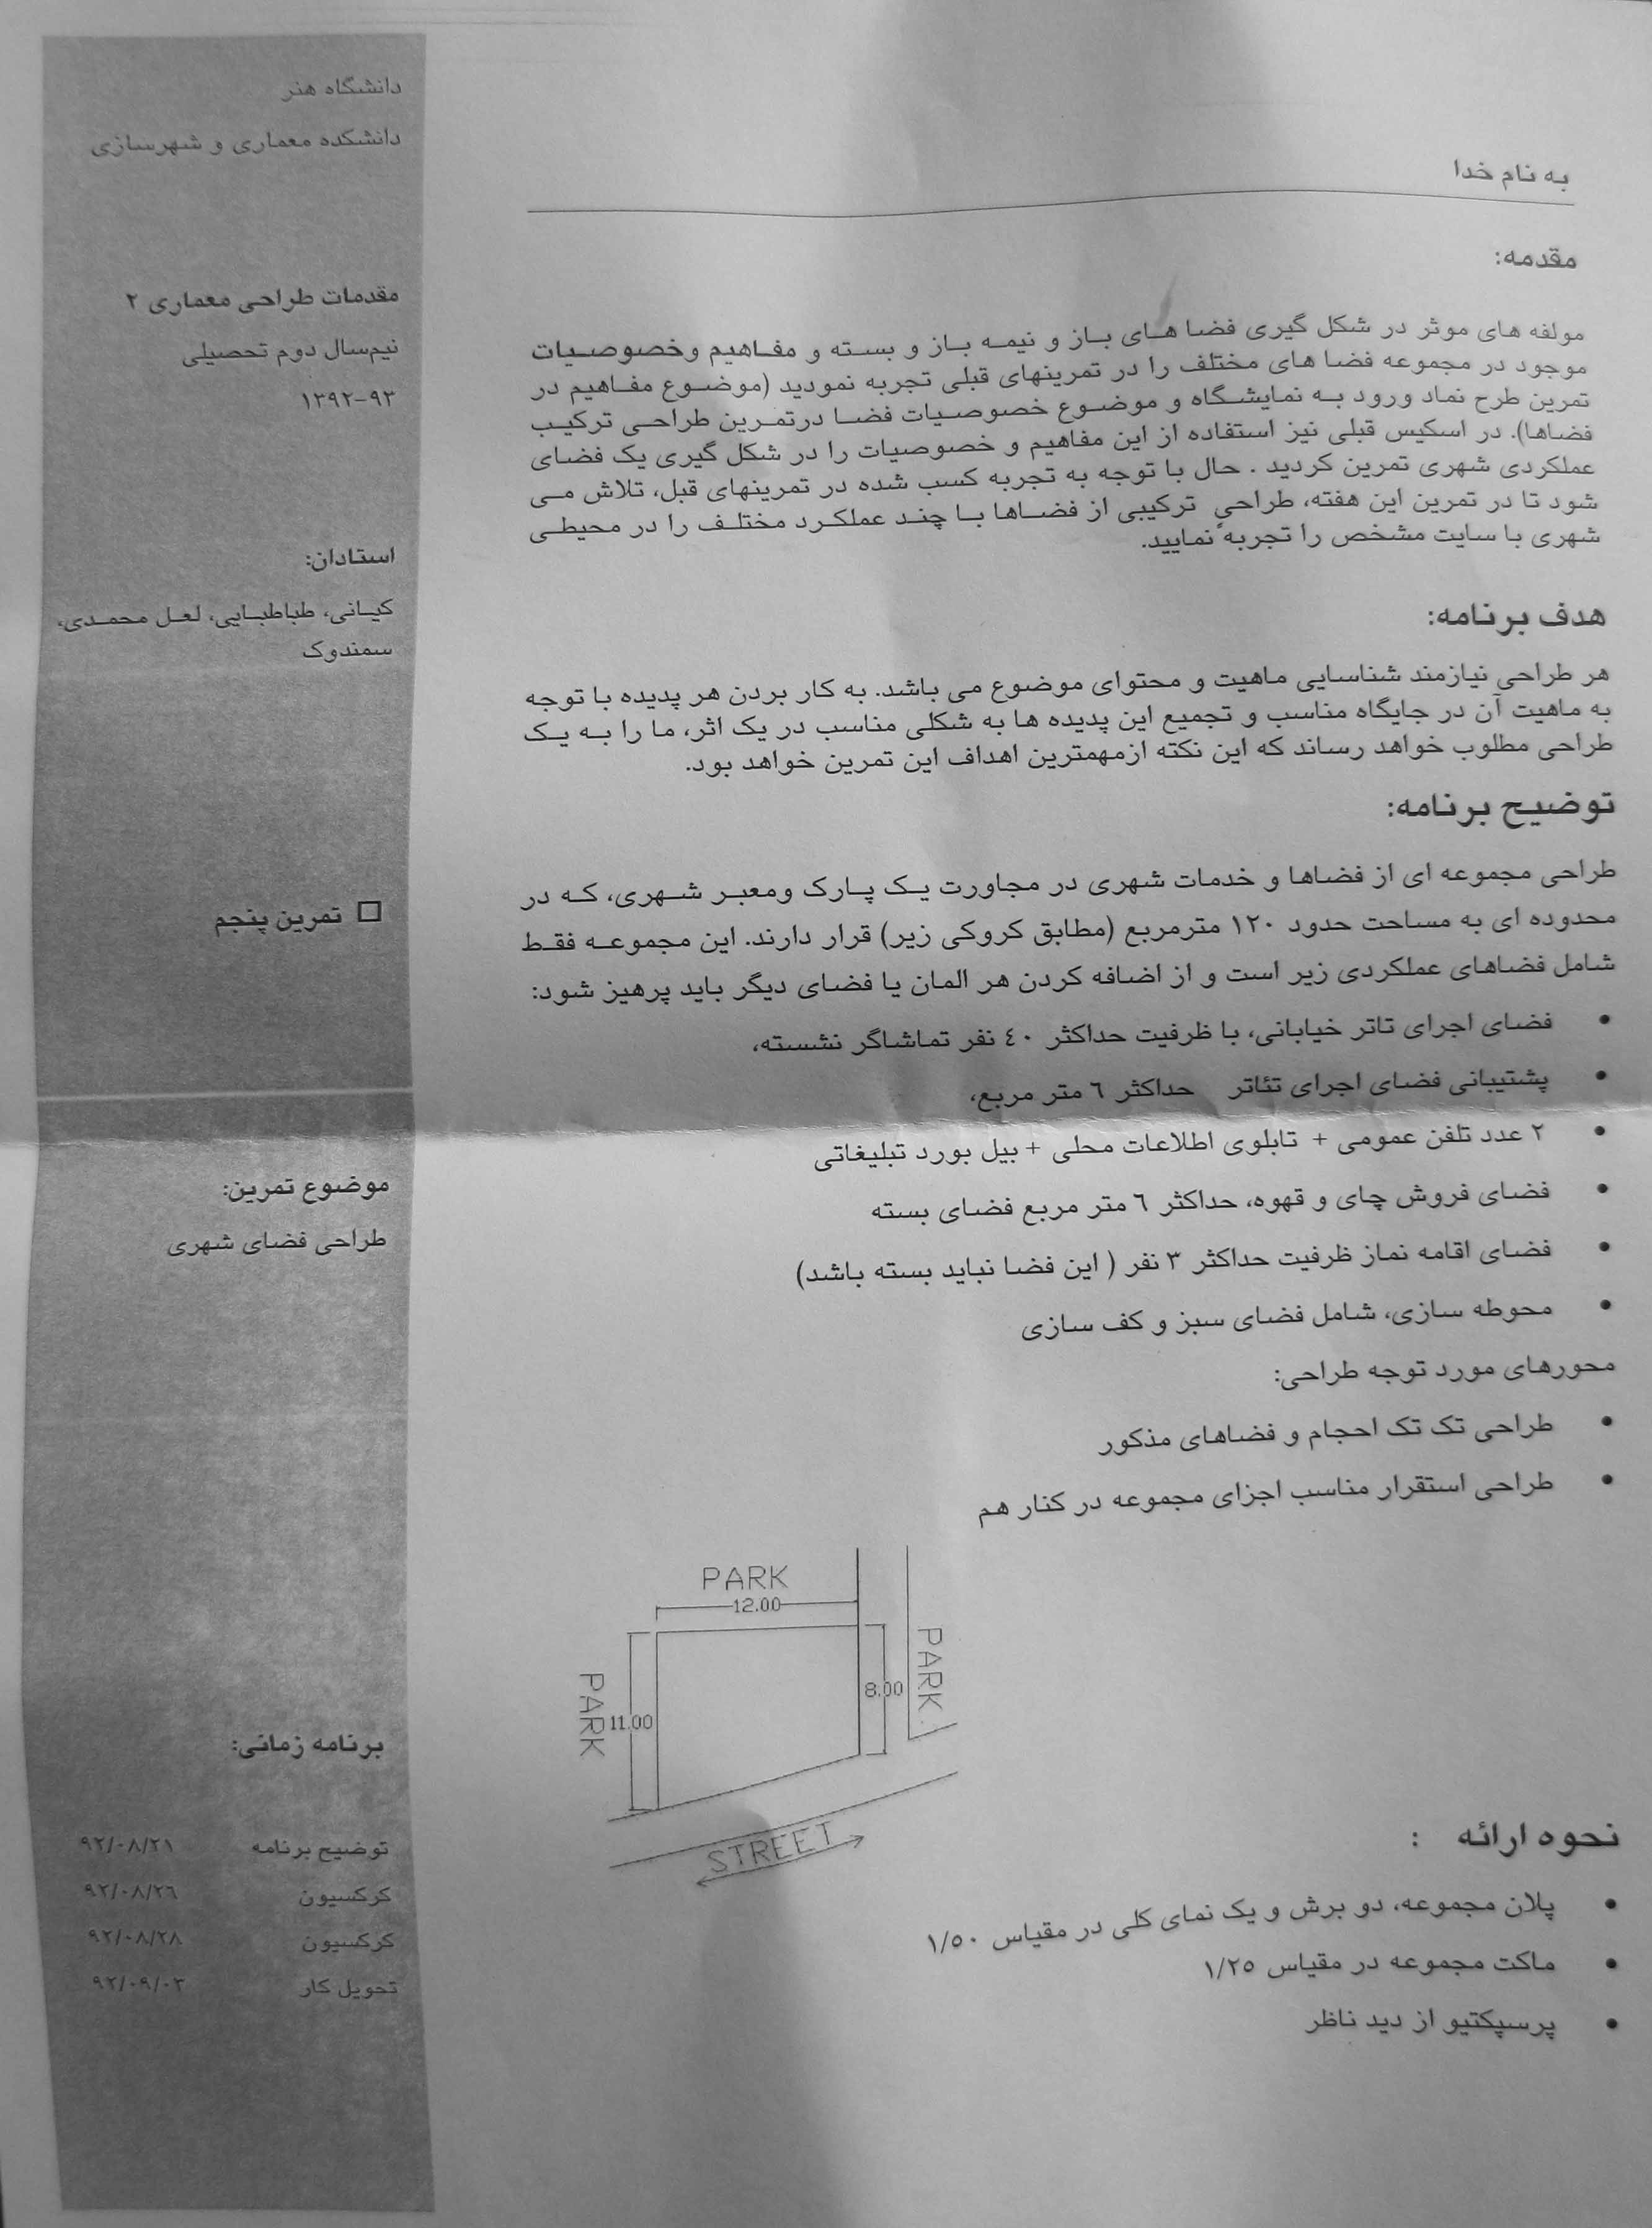 دانشگاه هنر
دانشکده معماری و شهرسازی
مقدمات طراحی معماری ۲
نیم‌سال دوم تحصیلی
۱۳۹۲-۹۳
استادان:
کیـانی، طباطبـایی، لعـل محمـدی،
سمندوک
□ تمرین پنجم
موضوع تمرین:
طراحی فضای شهری
برنامه زمانی:
توضیح برنامه ۹۲/۰۸/۲۱
کرکسیون ۹۲/۰۸/۲۶
کرکسیون ۹۲/۰۸/۲۸
تحویل کار ۹۲/۰۹/۰۳
به نام خدا
مقدمه:
مولفه های موثر در شکل گیری فضا هـای بـاز و نیمـه بـاز و بسـته و مفـاهیم وخصوصـیات
موجود در مجموعه فضا های مختلف را در تمرینهای قبلی تجربه نمودید (موضـوع مفـاهیم در
تمرین طرح نماد ورود بـه نمایشـگاه و موضـوع خصوصـیات فضـا درتمـرین طراحـی ترکیـب
فضاها). در اسکیس قبلی نیز استفاده از این مفاهیم و خصوصیات را در شکل گیری یک فضای
عملکردی شهری تمرین کردید . حال با توجه به تجربه کسب شده در تمرینهای قبل، تلاش مـی
شود تا در تمرین این هفته، طراحی ترکیبی از فضـاها بـا چنـد عملکـرد مختلـف را در محیطـی
شهری با سایت مشخص را تجربه نمایید.
هدف برنامه:
هر طراحی نیازمند شناسایی ماهیت و محتوای موضوع می باشد. به کار بردن هر پدیده با توجه
به ماهیت آن در جایگاه مناسب و تجمیع این پدیده ها به شکلی مناسب در یک اثر، ما را بـه یـک
طراحی مطلوب خواهد رساند که این نکته ازمهمترین اهداف این تمرین خواهد بود.
توضیح برنامه:
طراحی مجموعه ای از فضاها و خدمات شهری در مجاورت یـک پـارک ومعبـر شـهری، کـه در
محدوده ای به مساحت حدود ۱۲۰ مترمربع (مطابق کروکی زیر) قرار دارند. این مجموعـه فقـط
شامل فضاهای عملکردی زیر است و از اضافه کردن هر المان یا فضای دیگر باید پرهیز شود:
• فضای اجرای تاتر خیابانی، با ظرفیت حداکثر ۴۰ نفر تماشاگر نشسته،
• پشتیبانی فضای اجرای تئاتر حداکثر ۶ متر مربع،
• ۲ عدد تلفن عمومی + تابلوی اطلاعات محلی + بیل بورد تبلیغاتی
• فضای فروش چای و قهوه، حداکثر ۶ متر مربع فضای بسته
• فضای اقامه نماز ظرفیت حداکثر ۳ نفر ( این فضا نباید بسته باشد)
• محوطه سازی، شامل فضای سبز و کف سازی
محورهای مورد توجه طراحی:
• طراحی تک تک احجام و فضاهای مذکور
• طراحی استقرار مناسب اجزای مجموعه در کنار هم
PARK
12.00
PARK
8.00
PARK
11.00
STREET
نحوه ارائه :
• پلان مجموعه، دو برش و یک نمای کلی در مقیاس ۱/۵۰
• ماکت مجموعه در مقیاس ۱/۲۵
• پرسپکتیو از دید ناظر